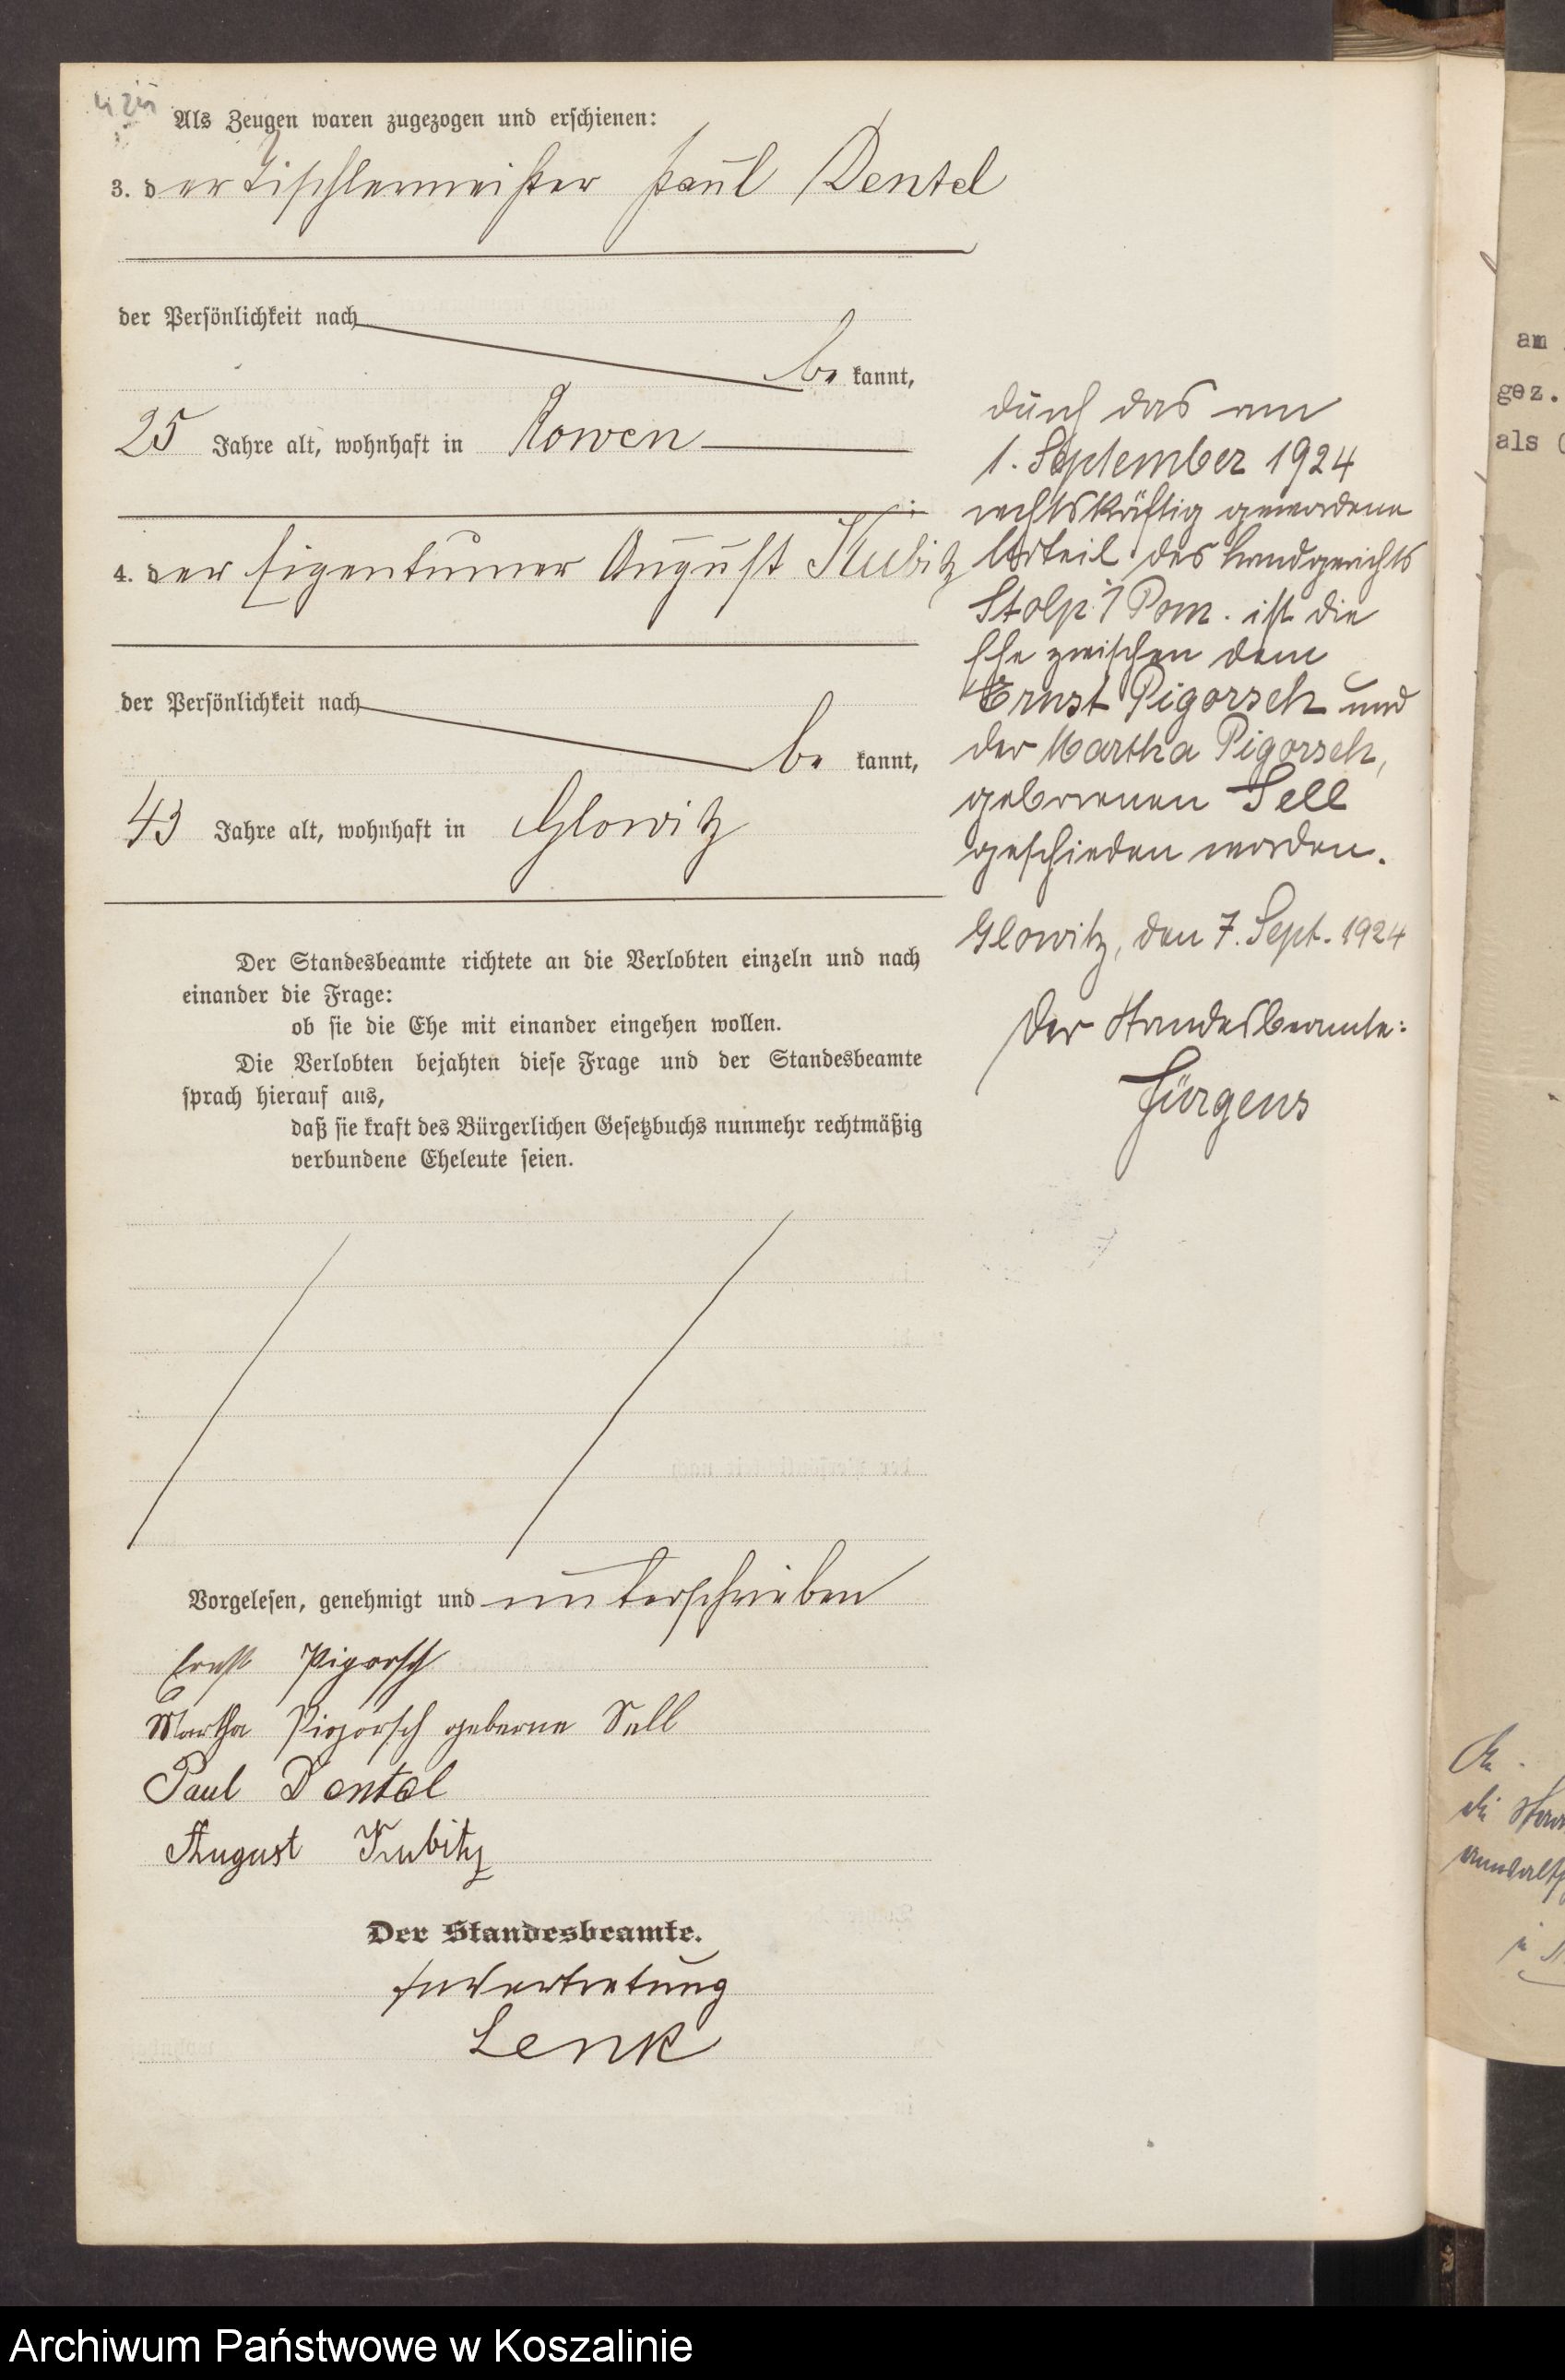 Als Zeugen waren zugezogen und erschienen:
3. der Tischlermeister Paul Dentel
der Persönlichkeit nach
be kannt,
25 Jahre alt, wohnhaft in Rowen
4. der Eigentümer August Kubitz
der Persönlichkeit nach
be kannt,
43 Jahre alt, wohnhaft in Glowitz
Der Standesbeamte richtete an die Verlobten einzeln und nach
einander die Frage:
ob sie die Ehe mit einander eingehen wollen.
Die Verlobten bejahten diese Frage und der Standesbeamte
sprach hierauf aus,
daß sie kraft des Bürgerlichen Gesetzbuchs nunmehr rechtmäßig
verbundene Eheleute seien.
Vorgelesen, genehmigt und unterschrieben
Ernst Pigorsch
Martha Pigorsch geborne Sell
Paul Dentel
August Kubitz
Der Standesbeamte.
In Vertretung
Lenk
Durch das am
1. September 1924
rechtskräftig gewordene
Urteil des Landgerichts
Stolp i/Pom. ist die
Ehe zwischen dem
Ernst Pigorsch und
der Martha Pigorsch,
geborenen Sell
geschieden worden.
Glowitz, den 7. Sept. 1924
Der Standesbeamte:
Jürgens
am
gez.
als
An
die
Archiwum Państwowe w Koszalinie